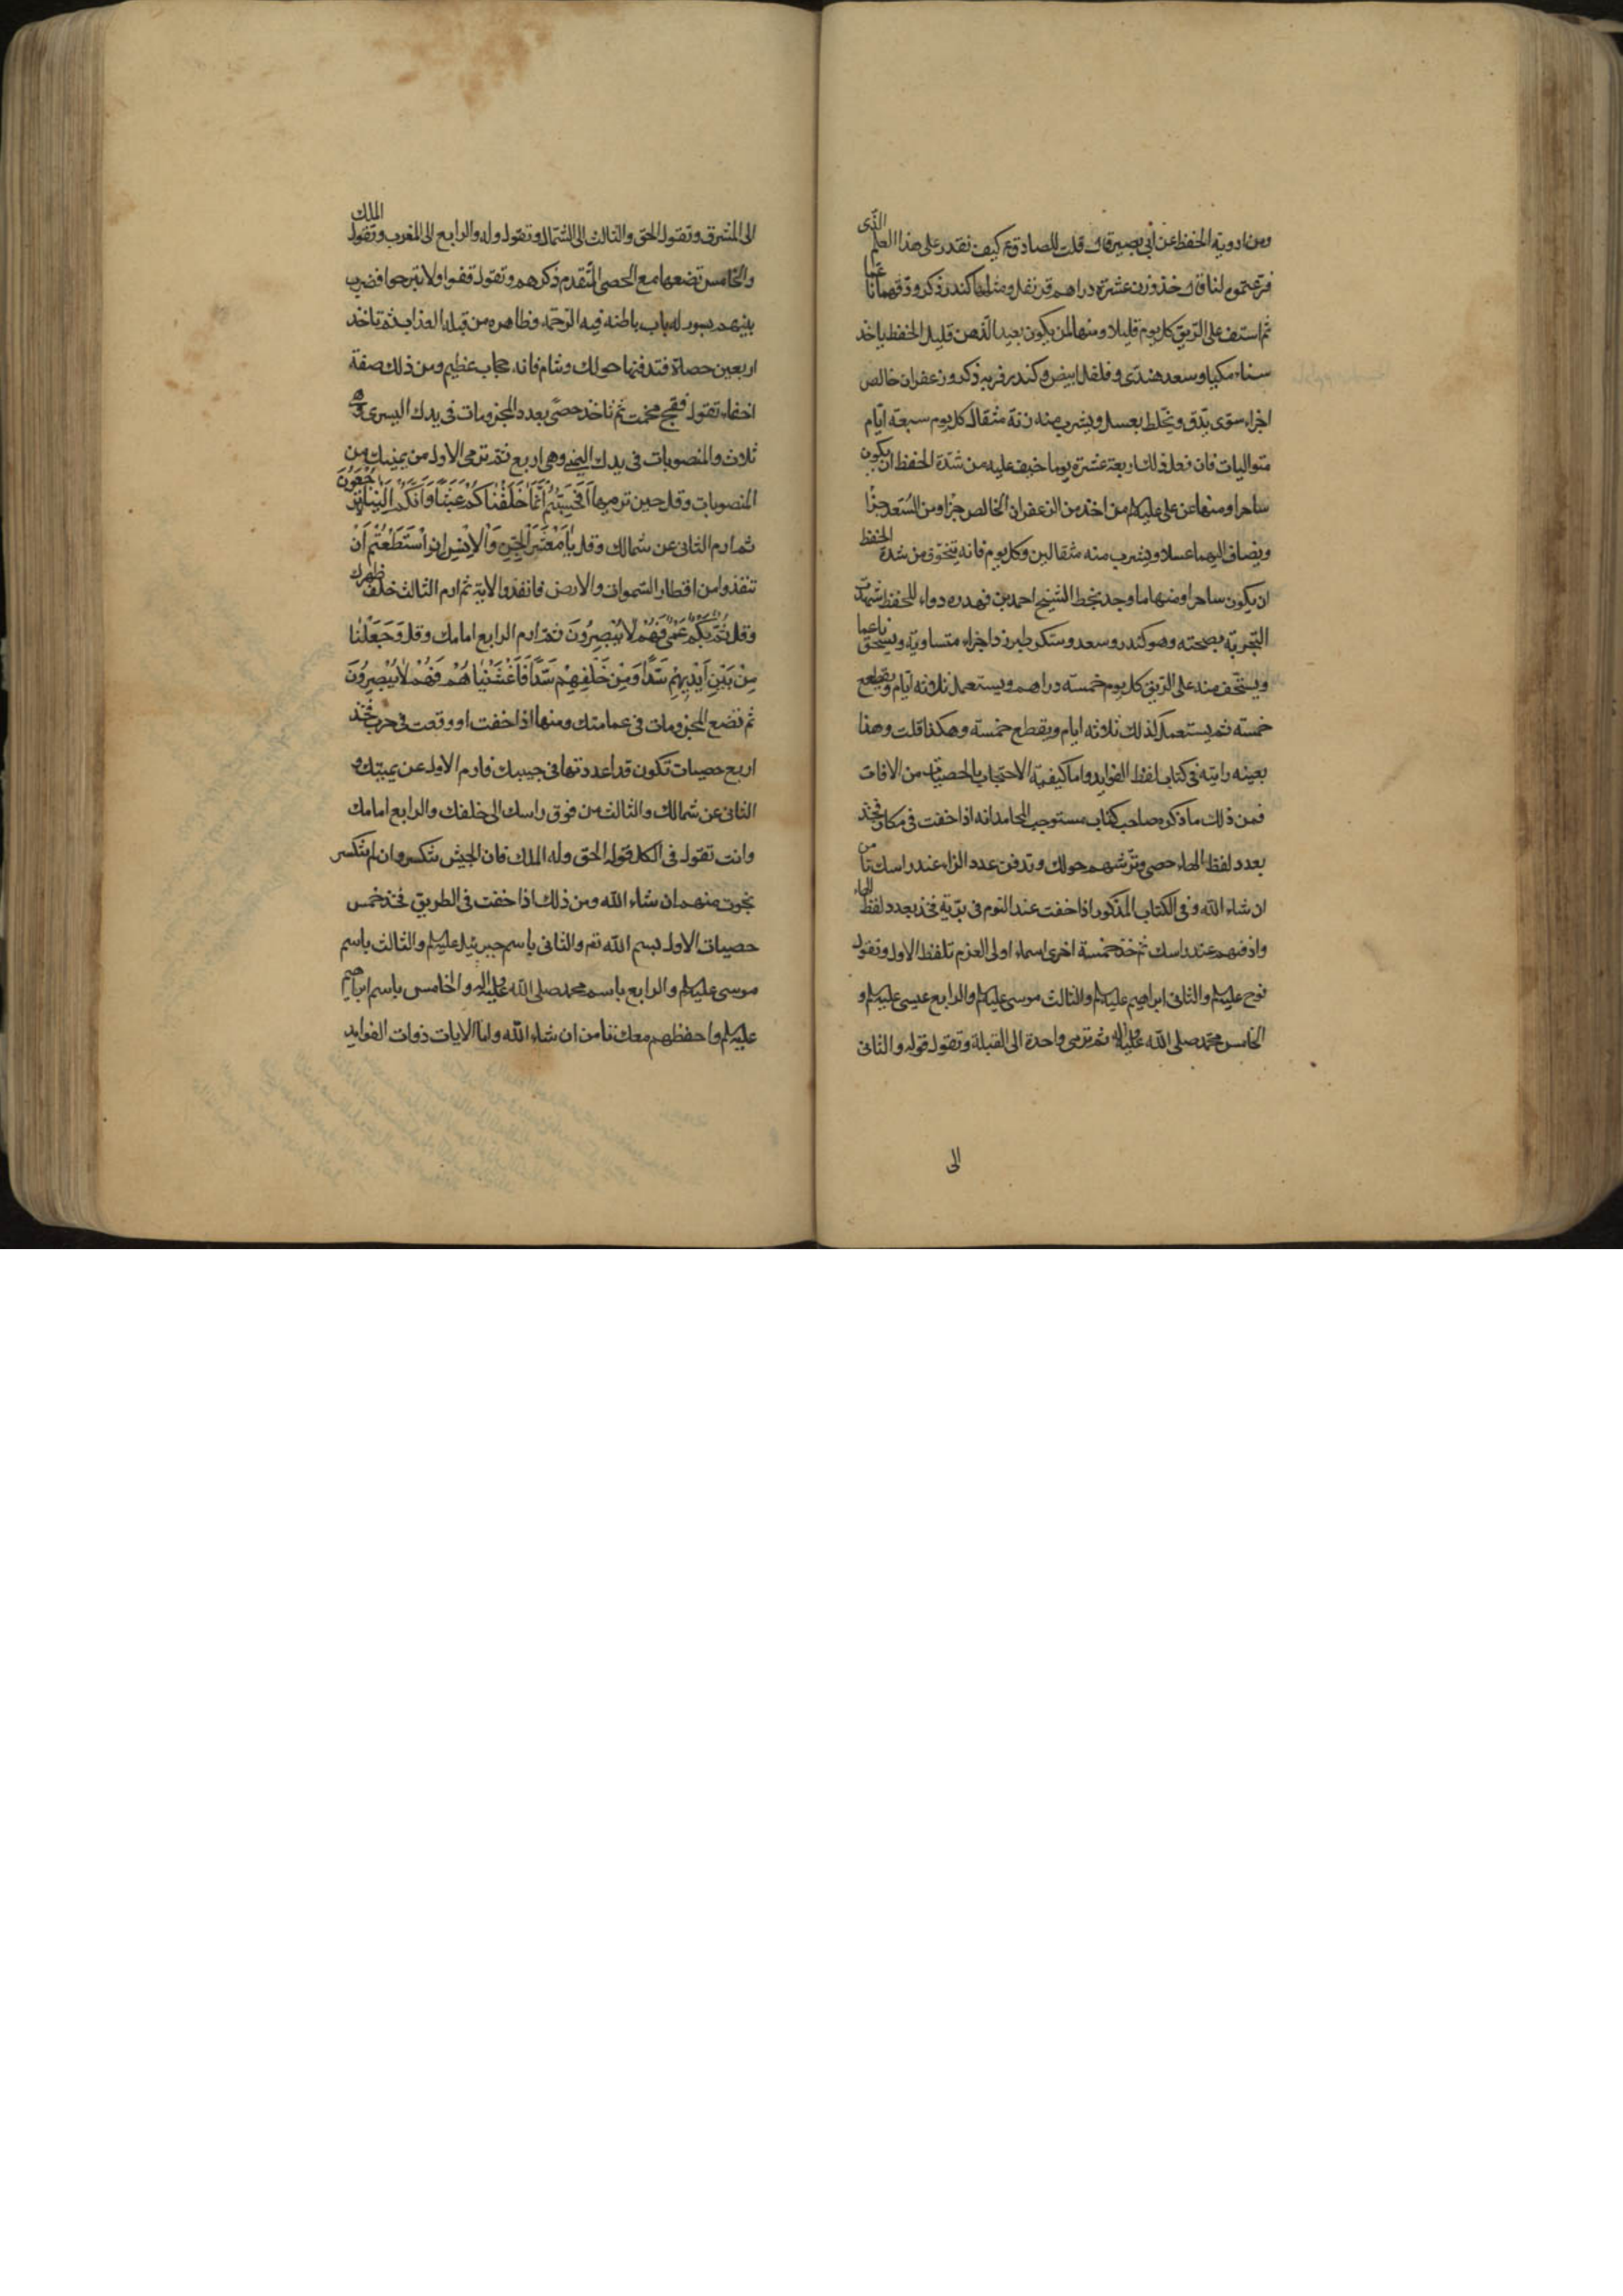 ومن ادوية الحفظ عن أبي بصير قال قلت للصادق ع كيف نقدر على هذا العلم الذى
فرغتموه لنا قال خذ وزن عشرة دراهم قرنفل ومثلها كندر ذكر ودقهما ناعما
ثم استف على الريق كل يوم قليلا ومنها لمن يكون بعيد الذهن قليل الحفظ ياخذ
سناء مكيا وسعد هندى وفلفل ابيض وكندر ذكر وزعفران خالص
اجزاء سوى يدق ويخلط بعسل ويشرب منه زنة مثقال كل يوم سبعة ايام
متواليات فان فعل ذلك اربعة عشرة يوما خيف عليه من شدة الحفظ ان يكون
ساحرا ومنها عن على عليه السلام من اخذ من الزعفران الخالص جزأ ومن السعد جزأ
ويضاف اليهما عسلا ويشرب منه مثقالين وكل يوم فانه يتخوف من شدة الحفظ
ان يكون ساحرا ومنها ما وجد بخط الشيخ احمد بن فهد ره دواء للحفظ شهدت
التجربة بصحته وهو كندر وسعد وسكر طبرزد اجزاء متساوية ويسحق ناعما
ويستحف منه على الريق كل يوم خمسة دراهم ويستعمل ثلاثة ايام ويقطع
خمسة ثم يستعمل كذلك ثلاثة ايام ويقطع خمسة وهكذا قلت وهذا
بعينه رايته في كتاب لفظ الفوايد واما كيفية الاحتجاب بالحصيات من الافات
فمن ذلك ما ذكره صاحب كتاب مستوجب المحامد انه اذا خفت في مكان فخذ
بعدد لفظ الحاء حصى وترشهم حولك وتدفن عدد الزاء عند راسك تامن
ان شاء الله وفي الكتاب المذكور اذا خفت عند النوم في برية فخذ بعدد لفظ الحاء
وادفنهم عند راسك ثم خذ خمسة اخرى اسماء اولى العزم تلفظ الاول وتقول
نوح عليه السلام والثانى ابراهيم عليه السلام والثالث موسى عليه السلام والرابع عيسى عليه السلام و
الخامس محمد صلى الله عليه واله ثم ترمى واحدة الى القبلة وتقول قوله والثانى
الى
الى المشرق وتقول الحق والثالث الى الشمال وتقول وله والرابع الى المغرب وتقول الملك
والخامس تضعها مع الحصى المتقدم ذكرهم وتقول قفوا ولا تبرحوا فضرب
بينهم بسور له باب باطنه فيه الرحمة وظاهره من قبله العذاب ثم تاخذ
اربعين حصاة فتدفنها حولك وتنام فانه حجاب عظيم ومن ذلك صفة
اخفاء تقول فقج مخمت ثم تاخذ حصى بعدد المجزومات في يدك اليسرى وهى
ثلاث والمنصوبات في يدك اليمنى وهى اربع ثم ترمى الاول من يمينك من
المنصوبات وقل حين ترميها أَفَحَسِبْتُمْ أَنَّمَا خَلَقْنَاكُمْ عَبَثًا وَأَنَّكُمْ إِلَيْنَا لَا تُرْجَعُونَ
ثم ارم الثانى عن شمالك وقل يَا مَعْشَرَ الْجِنِّ وَالْإِنْسِ إِنِ اسْتَطَعْتُمْ أَنْ
تنفذوا من اقطار السموات والارض فانفذوا الاية ثم ارم الثالث خلف ظهرك
وقل صُمٌّ بُكْمٌ عُمْيٌ فَهُمْ لَا يُبْصِرُونَ ثم ارم الرابع امامك وقل وَجَعَلْنَا
مِنْ بَيْنِ أَيْدِيهِمْ سَدًّا وَمِنْ خَلْفِهِمْ سَدًّا فَأَغْشَيْنَاهُمْ فَهُمْ لَا يُبْصِرُونَ
ثم تضع المجزومات في عمامتك ومنها اذا خفت او وقعت في حرب فخذ
اربع حصيات تكون قد اعددتها في جيبك فارم الاول عن يمينك و
الثانى عن شمالك والثالث من فوق راسك الى خلفك والرابع امامك
وانت تقول في الكل قوله الحق وله الملك فان الجيش ينكسر وان لم ينكسر
نجوت منهم ان شاء الله ومن ذلك اذا خفت في الطريق فخذ خمس
حصيات الاول بسم الله تع والثانى باسم جبرئيل عليه السلام والثالث باسم
موسى عليه السلام والرابع باسم محمد صلى الله عليه واله والخامس باسم ابراهيم
عليه السلام واحفظهم معك تامن ان شاء الله واما الايات ذوات الفوايد